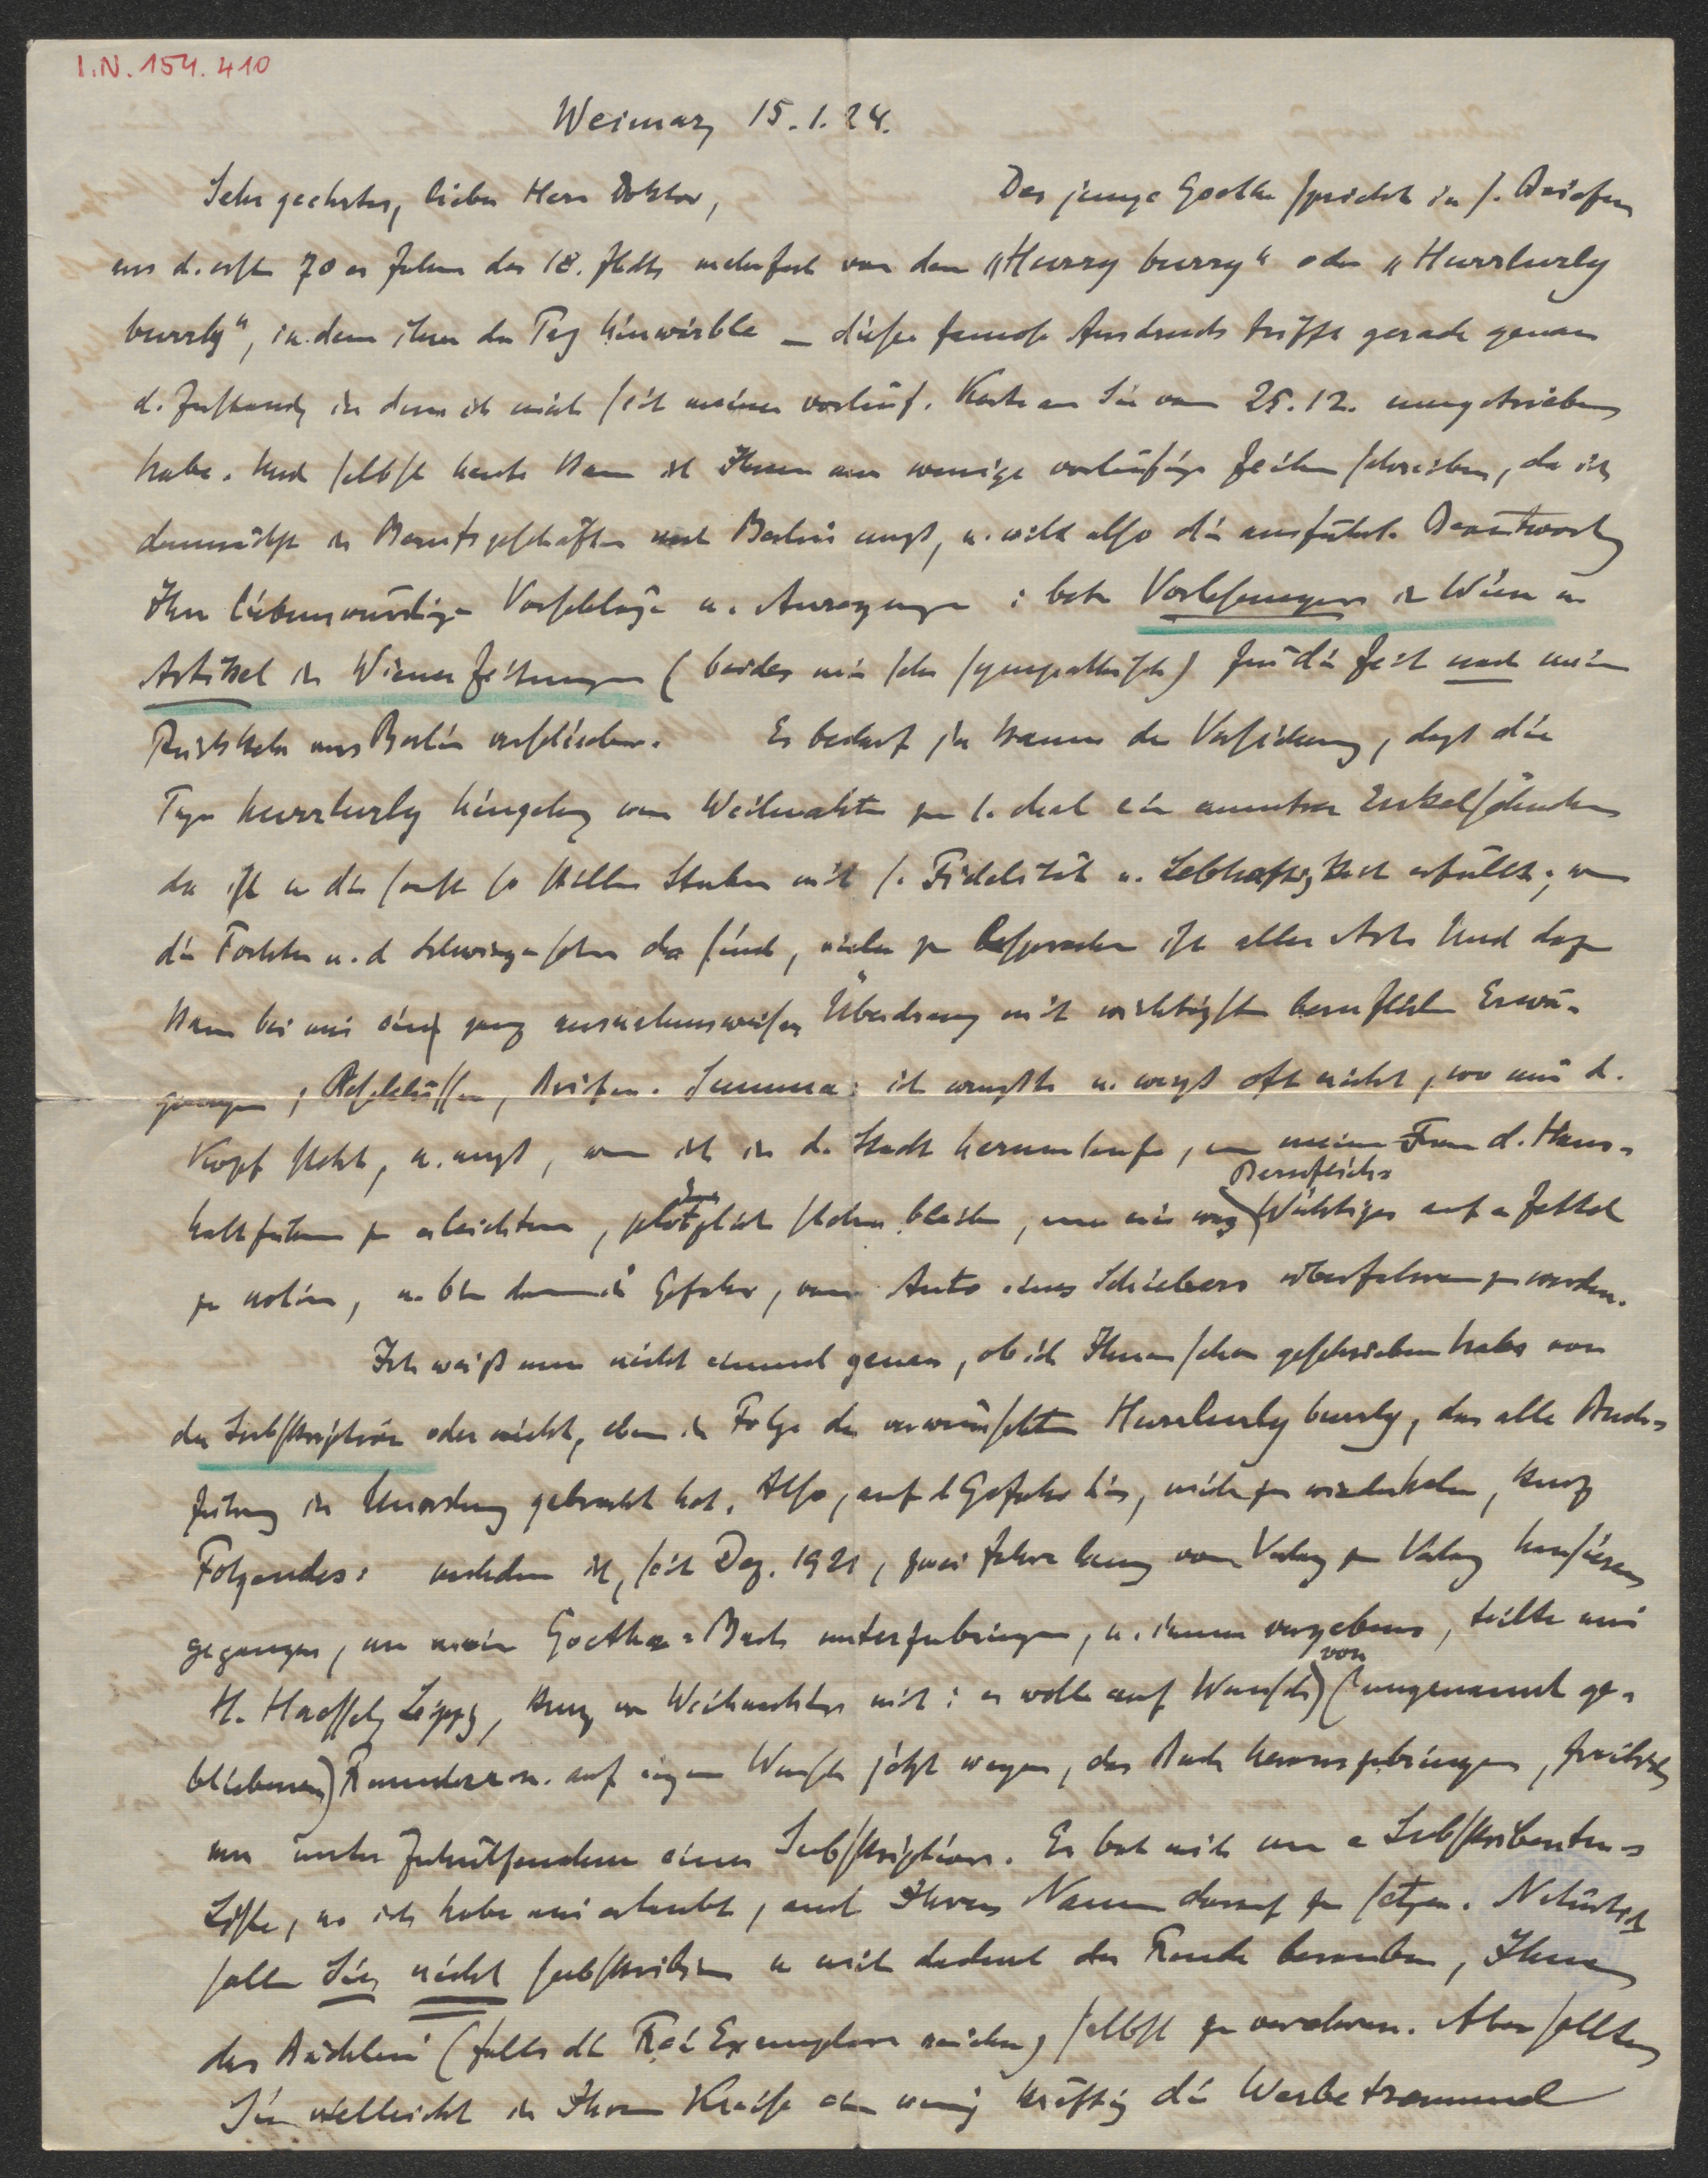 I.N. 154.410
Weimar, 15.1.24.
Sehr geehrter, lieber Herr Doktor, Der junge Goethe spricht in s. Briefen
aus d. ersten 70er Jahren des 18. Jhdts mehrfach von dem „Hurry burry“ oder „Hurrlurly
burrly“, in dem ihm der Tag hinwirble – dieser famose Ausdruck trifft gerade genau
d. Zustand, in dem ich mich seit meiner vorläuf. Karte an Sie vom 25.12. umgetrieben
habe. Und selbst heute kann ich Ihnen nur wenige vorläufige Zeilen schreiben, da ich
demnächst in Berufsgeschäften nach Berlin muß, u. will also die ausführl. Beantwortg
Ihrer liebenswürdigen Vorschläge u. Anregungen : betr Vorlesungen in Wien u
Artikel in Wiener Zeitungen (beides mir sehr sympathisch) für die Zeit nach meiner
Rückkehr aus Berlin verschieben. Es bedarf ja kaum der Versicherung, daß die
Tage hurrlurly hingehen, wenn Weihnachten zum 1. Mal ein Enkelsöhnchen
da ist u die sonst so stillen Stuben mit s. Fidelität u. Lebhaftigkeit erfüllt; wenn
die Tochter u. d Schwiegersohn da sind, vieles zu besprechen ist aller Art. Und dazu
kam bei mir eine ganz ausnahmsweise Überhäufung mit wichtigsten beruflichen Erwä-
gungen, Beschlüssen, Briefen. Summa: ich wußte u. weiß oft nicht, wo mir d.
Kopf steht, u. muß, wenn ich in d. Stadt herumlaufe, um meiner Frau d. Haus-
halt führen zu erleichtern, plötzlich stehen bleiben, um mir was Beruflich-Wichtiges auf e Zettel
zu notieren, u. bin dann in Gefahr, vom Auto eines Schiebers überfahren zu werden.
Ich weiß nun nicht einmal genau, ob ich Ihnen schon geschrieben habe von
der Subskription oder nicht, eben in Folge des verwünschten Hurrlurly burrly, das alle Buch-
führung in Unordnung gebracht hat. Also, auf d Gefahr hin, mich zu wiederholen, kurz
Folgendes: nachdem ich, seit Dez. 1921, zwei Jahre lang von Verlag zu Verlag hausieren
gegangen, um mein Goethe-Buch unterzubringen, u. immer vergebens, teilte mir
H. Haessel, Leipzg, kurz vor Weihnachten mit: er wolle auf Wunsch von (ungenannt ge-
bliebenen) Freunden u. auf eigenen Wunsch jetzt wagen, das Buch herauszubringen, freilich
nur unter Zuhülfenahme einer Subskription. Er bat mich um e Subskribenten-
Liste, u. ich habe mir erlaubt, auch Ihren Namen darauf zu setzen. Natürlich
sollen Sie nicht subskribieren u mich dadurch der Freude berauben, Ihnen
das Büchlein (falls die Frei Exemplare reichen) selbst zu verehren. Aber sollten
Sie vielleicht in Ihrem Kreise ein wenig kräftig die Werbetrommel